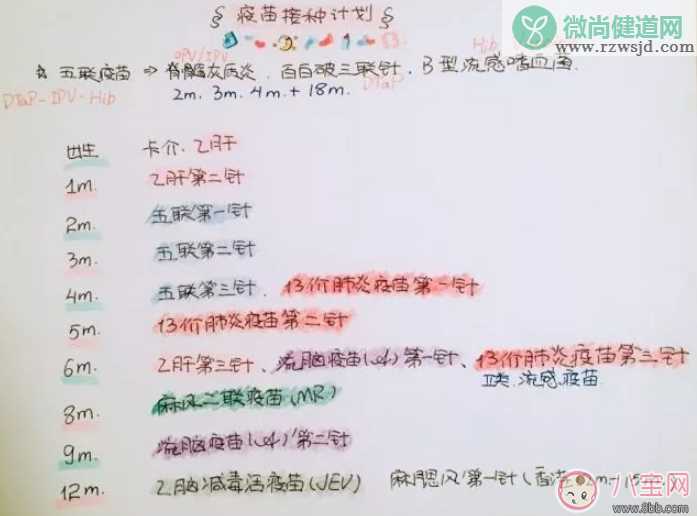 § 疫苗接种计划 §
微尚健道网
www.rzwsjd.com
OPV/IPV
Hib
☆ 五联疫苗 ⇒ 脊髓灰质炎、百白破三联针、B型流感嗜血菌.
DTaP-IPV-Hib
2m. 3m. 4m. + 18m.
DTaP
出生 卡介、乙肝
1m. 乙肝第二针
2m. 五联第一针
3m. 五联第二针
4m. 五联第三针、13价肺炎疫苗第一针
5m. 13价肺炎疫苗第二针
6m. 乙肝第三针、流脑疫苗 第一针、13价肺炎疫苗第三针
流感疫苗
8m. 麻风二联疫苗(MR)
9m. 流脑疫苗 第二针
12m. 乙脑减毒活疫苗(JEV) 麻腮风第一针(香港
八宝网
www.8bb.com